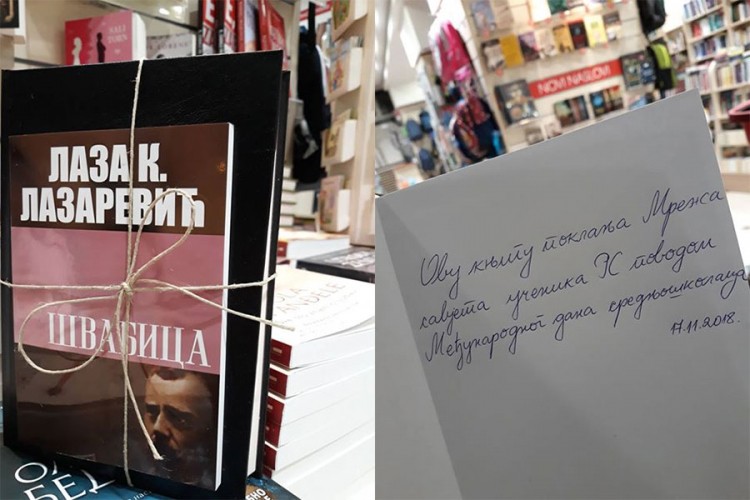 ЛАЗА К.
ЛАЗАРЕВИЋ
ШВАБИЦА
NOVI NASLOVI
Ову књигу поклања Мрежа
савета ученика РС поводом
Међународног дана средњошколаца
17.11.2018.